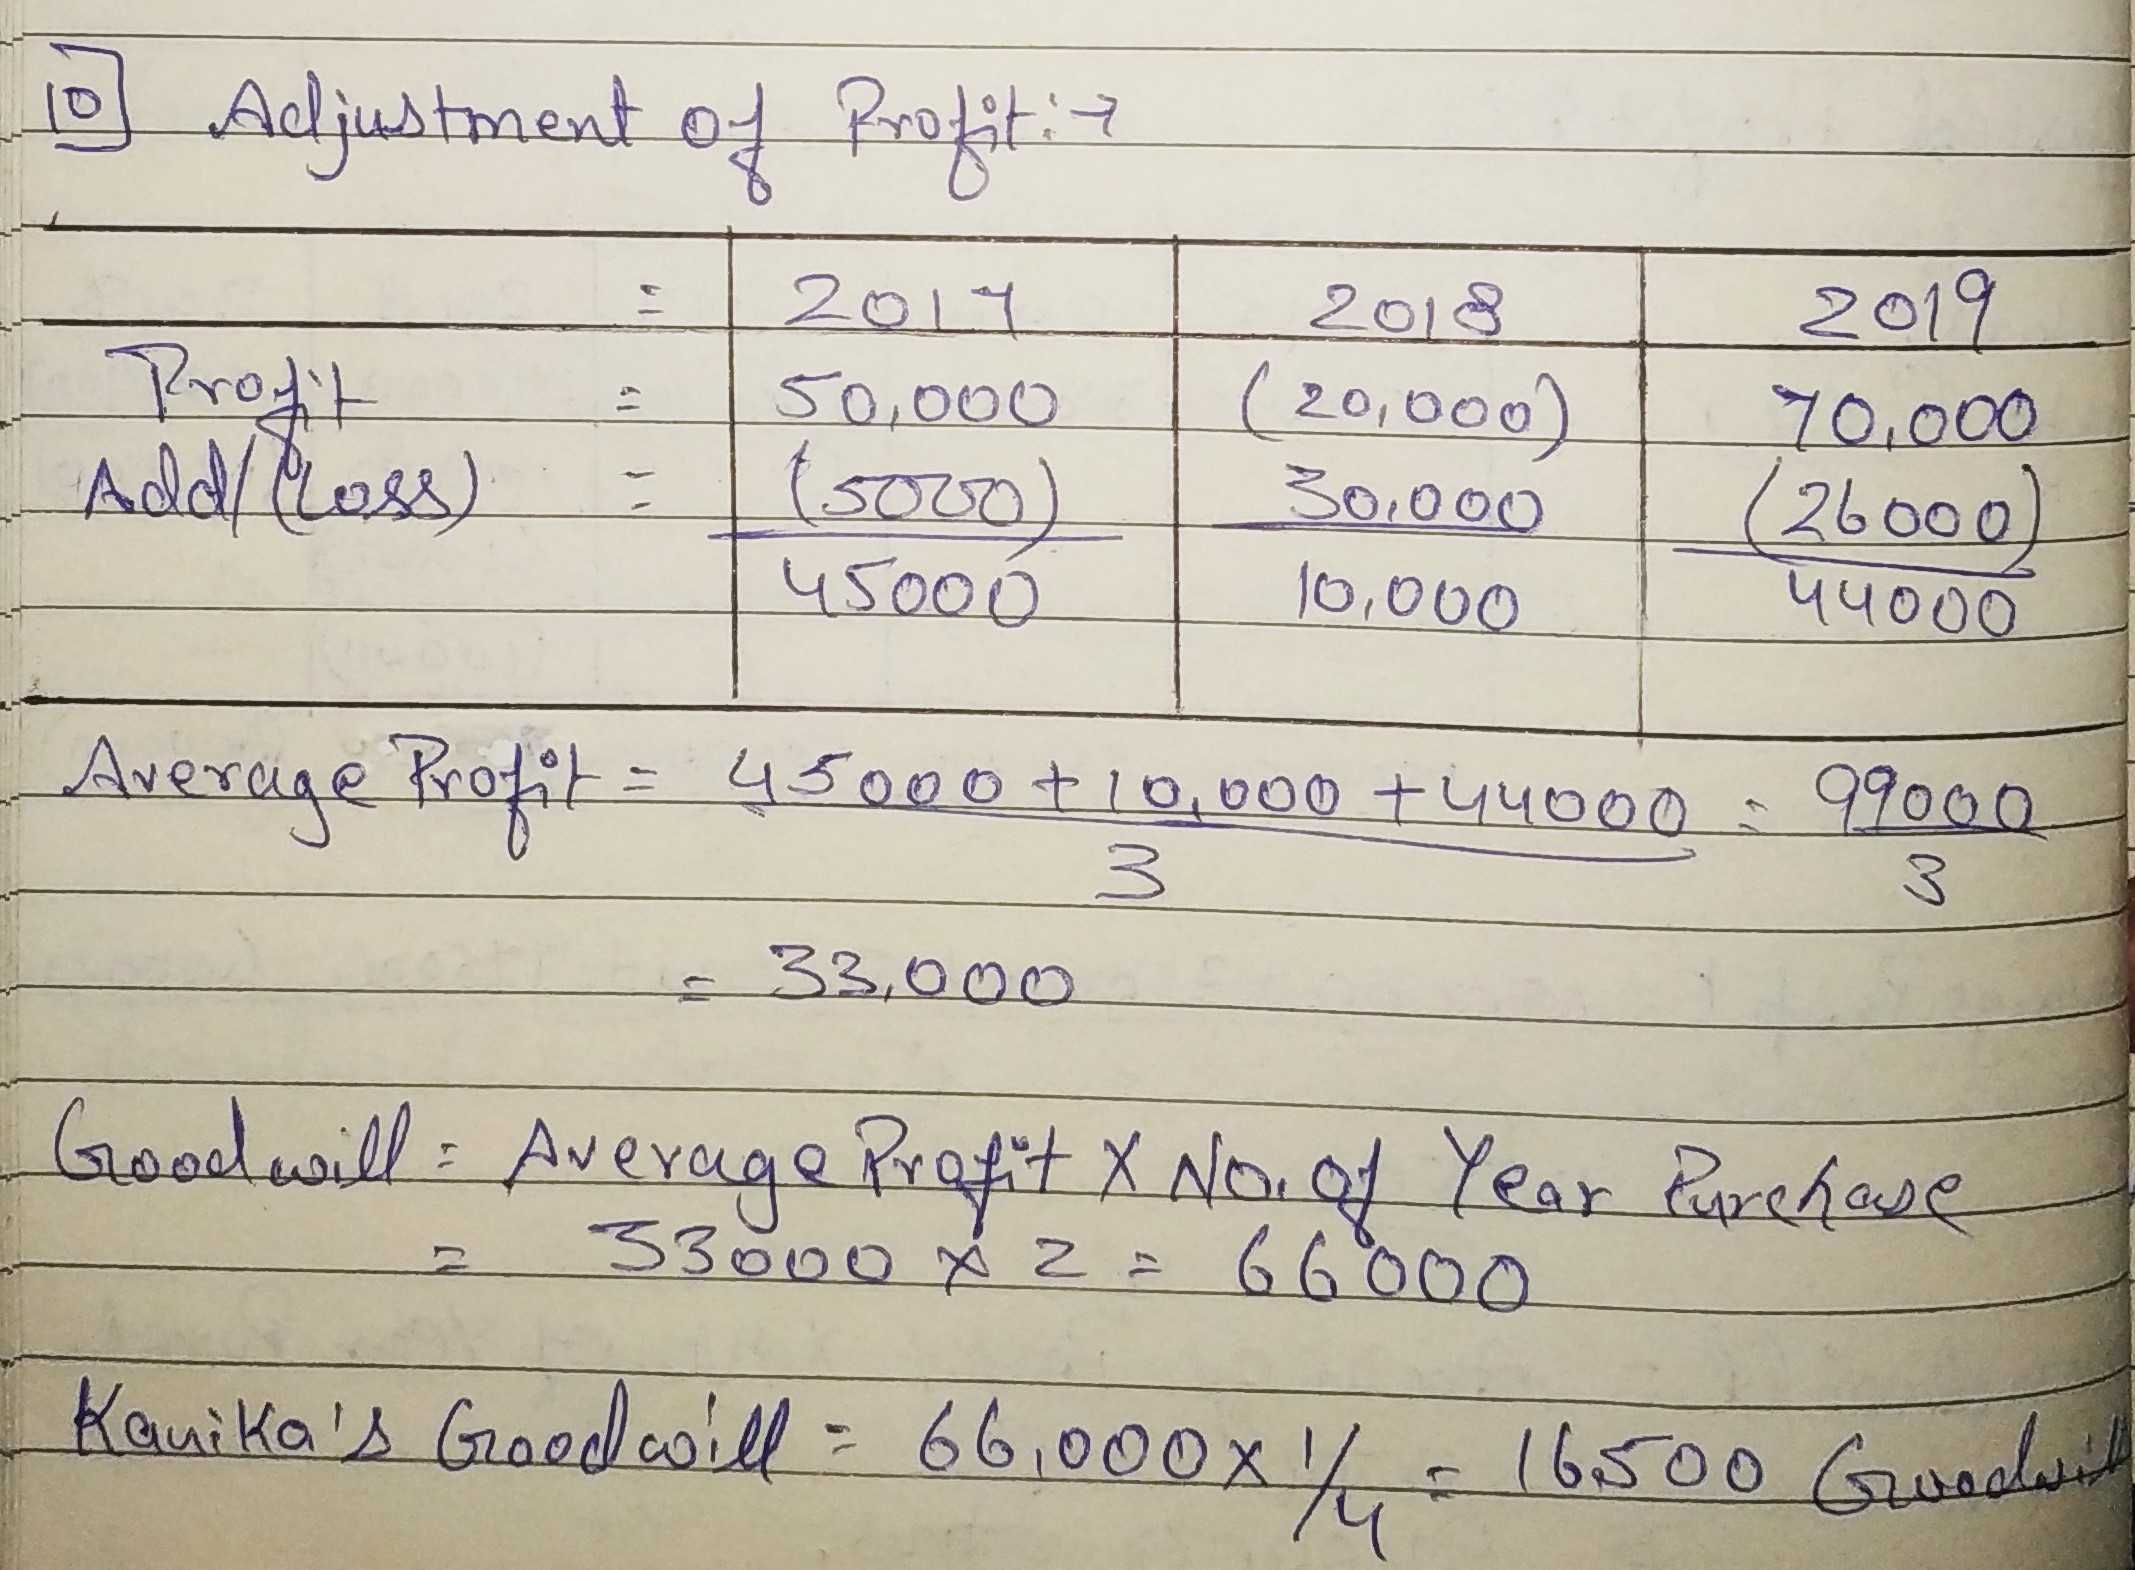 10] Adjustment of Profit:→
= 2017 2018 2019
Profit = 50,000 (20,000) 70,000
Add/(Loss) = (5000) 30,000 (26000)
45000 10,000 44000
Average Profit = 45000 + 10,000 + 44000 = 99000
3 3
= 33,000
Goodwill = Average Profit X No. of Year Purchase
= 33000 x 2 = 66000
Kanika's Goodwill = 66,000 x 1/4 = 16500 Goodwill